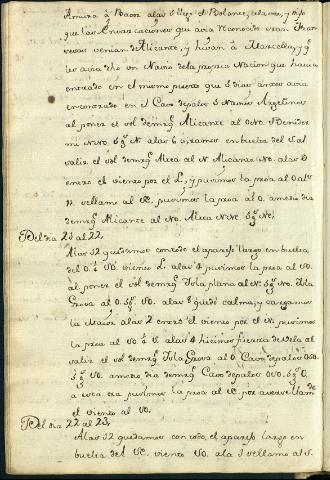 Arriba â Babor alas 5 llegó el Bolante, cela vio, y dijo
que las Embarcaciones que avia reconocido eran Fran
cesas venian de Alicante, y hivan â Marcella, y q.e
les avia dho un Navio de la propia Nacion que havia
entrado en el mismo puerto que 5 dias antes avia
encontrado en el Cavo de palos 5 Navios Argelinos
al poner el sol demrq.e Alicante al ONO. Benidor
mi NNO. 5g.e N. alas 6 viramos en buelta del S. al
valir el sol demrq.e Altea al N. Alicante NO. alas 8
entró el viento por el L. y pusimos la proa al O. alas
12 vellamo al SE. pusimos la proa al O. amedio dia
demrq.e Alicante al NO. Altea NNE. 5g.e NE.
Del dia 21 al 22.
Alas 12 quedamos con todo el aparejo largo en buelta
del O. viento L. alas 4 pusimos la proa al SO.
al poner el sol demrq.e Isla plana al N. Isla
Grosa al O. 5g.e SO. alas 8 quedó calma, y cargamos
la Maior alas 2 entró el viento por el N. pusimos
la proa al SO. alas 4 hicimos fuerza de vela al
valir el sol demrq.e Isla Grosa al O. Cavo de palos OSO.
5g.e SO. amedio dia demrq.e Cavo de palos OSO. 5g.e O.
a esta ora pusimos la proa al SE. por averse llamdo
el viento al SO.
Del dia 22 al 23.
Alas 12 quedamos con todo el aparejo largo en
buelta del SE. viento SO. ala 1 vellamo al S.